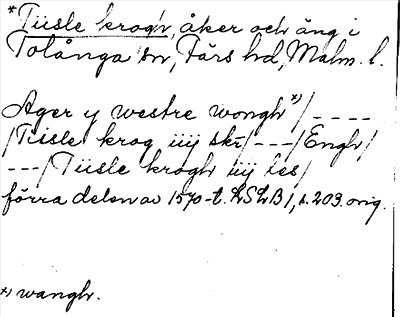 *Tiisle krogh, åker och äng i
Tolånga sn, Färs hd, Malm. l.
Ager y westre wongh *)/ ----
/Tiisle krog iiij skr/---/Engh/
---/Tiisle krogh iiij les/
förra delen av 1570-t. LSLB 1, s. 203. orig.
*) wangh.